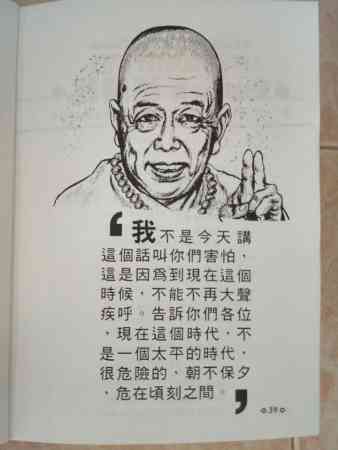 ‘我不是今天講
這個話叫你們害怕，
這是因爲到現在這個
時候，不能不再大聲
疾呼。告訴你們各位
，現在這個時代，不
是一個太平的時代，
很危險的，朝不保夕
，危在頃刻之間。’
39